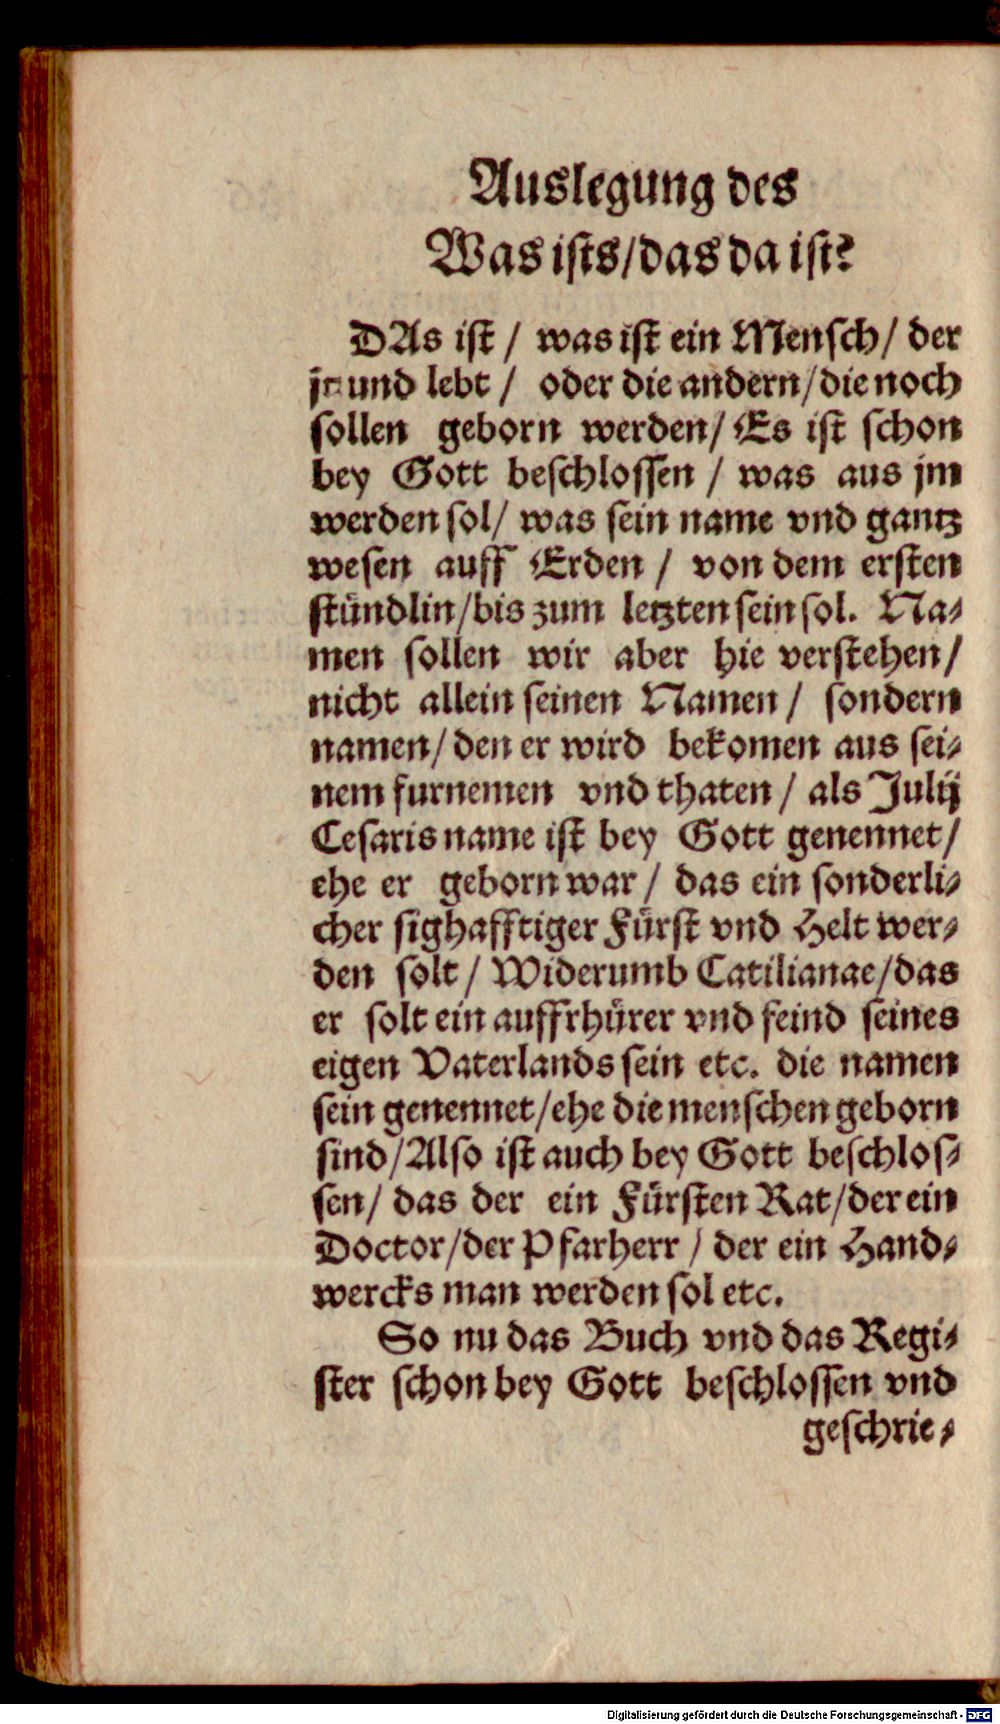 Auslegung des
Was ists/das da ist?
DAs ist / was ist ein Mensch/ der
und lebt / oder die andern/die noch
sollen geborn werden/ Es ist schon
bey Gott beschlossen / was aus jm
werden sol/ was sein name vnd gantz
wesen auff Erden / von dem ersten
stündlin/bis zum letzten sein sol. Na-
men sollen wir aber hie verstehen/
nicht allein seinen Namen / sondern
namen/ den er wird bekomen aus sei-
nem furnemen vnd thaten / als Julij
Cesaris name ist bey Gott genennet/
ehe er geborn war / das ein sonderli-
cher sighafftiger Fürst vnd Helt wer-
den solt / Widerumb Catilianae/das
er solt ein auffrhürer vnd feind seines
eigen Vaterlands sein etc. die namen
sein genennet/ehe die menschen geborn
sind/Also ist auch bey Gott beschlos-
sen/ das der ein Fürsten Rat/der ein
Doctor/der Pfarherr / der ein Hand-
wercks man werden sol etc.
So nu das Buch vnd das Regi-
ster schon bey Gott beschlossen vnd
geschrie-
Digitalisierung gefördert durch die Deutsche Forschungsgemeinschaft - DFG